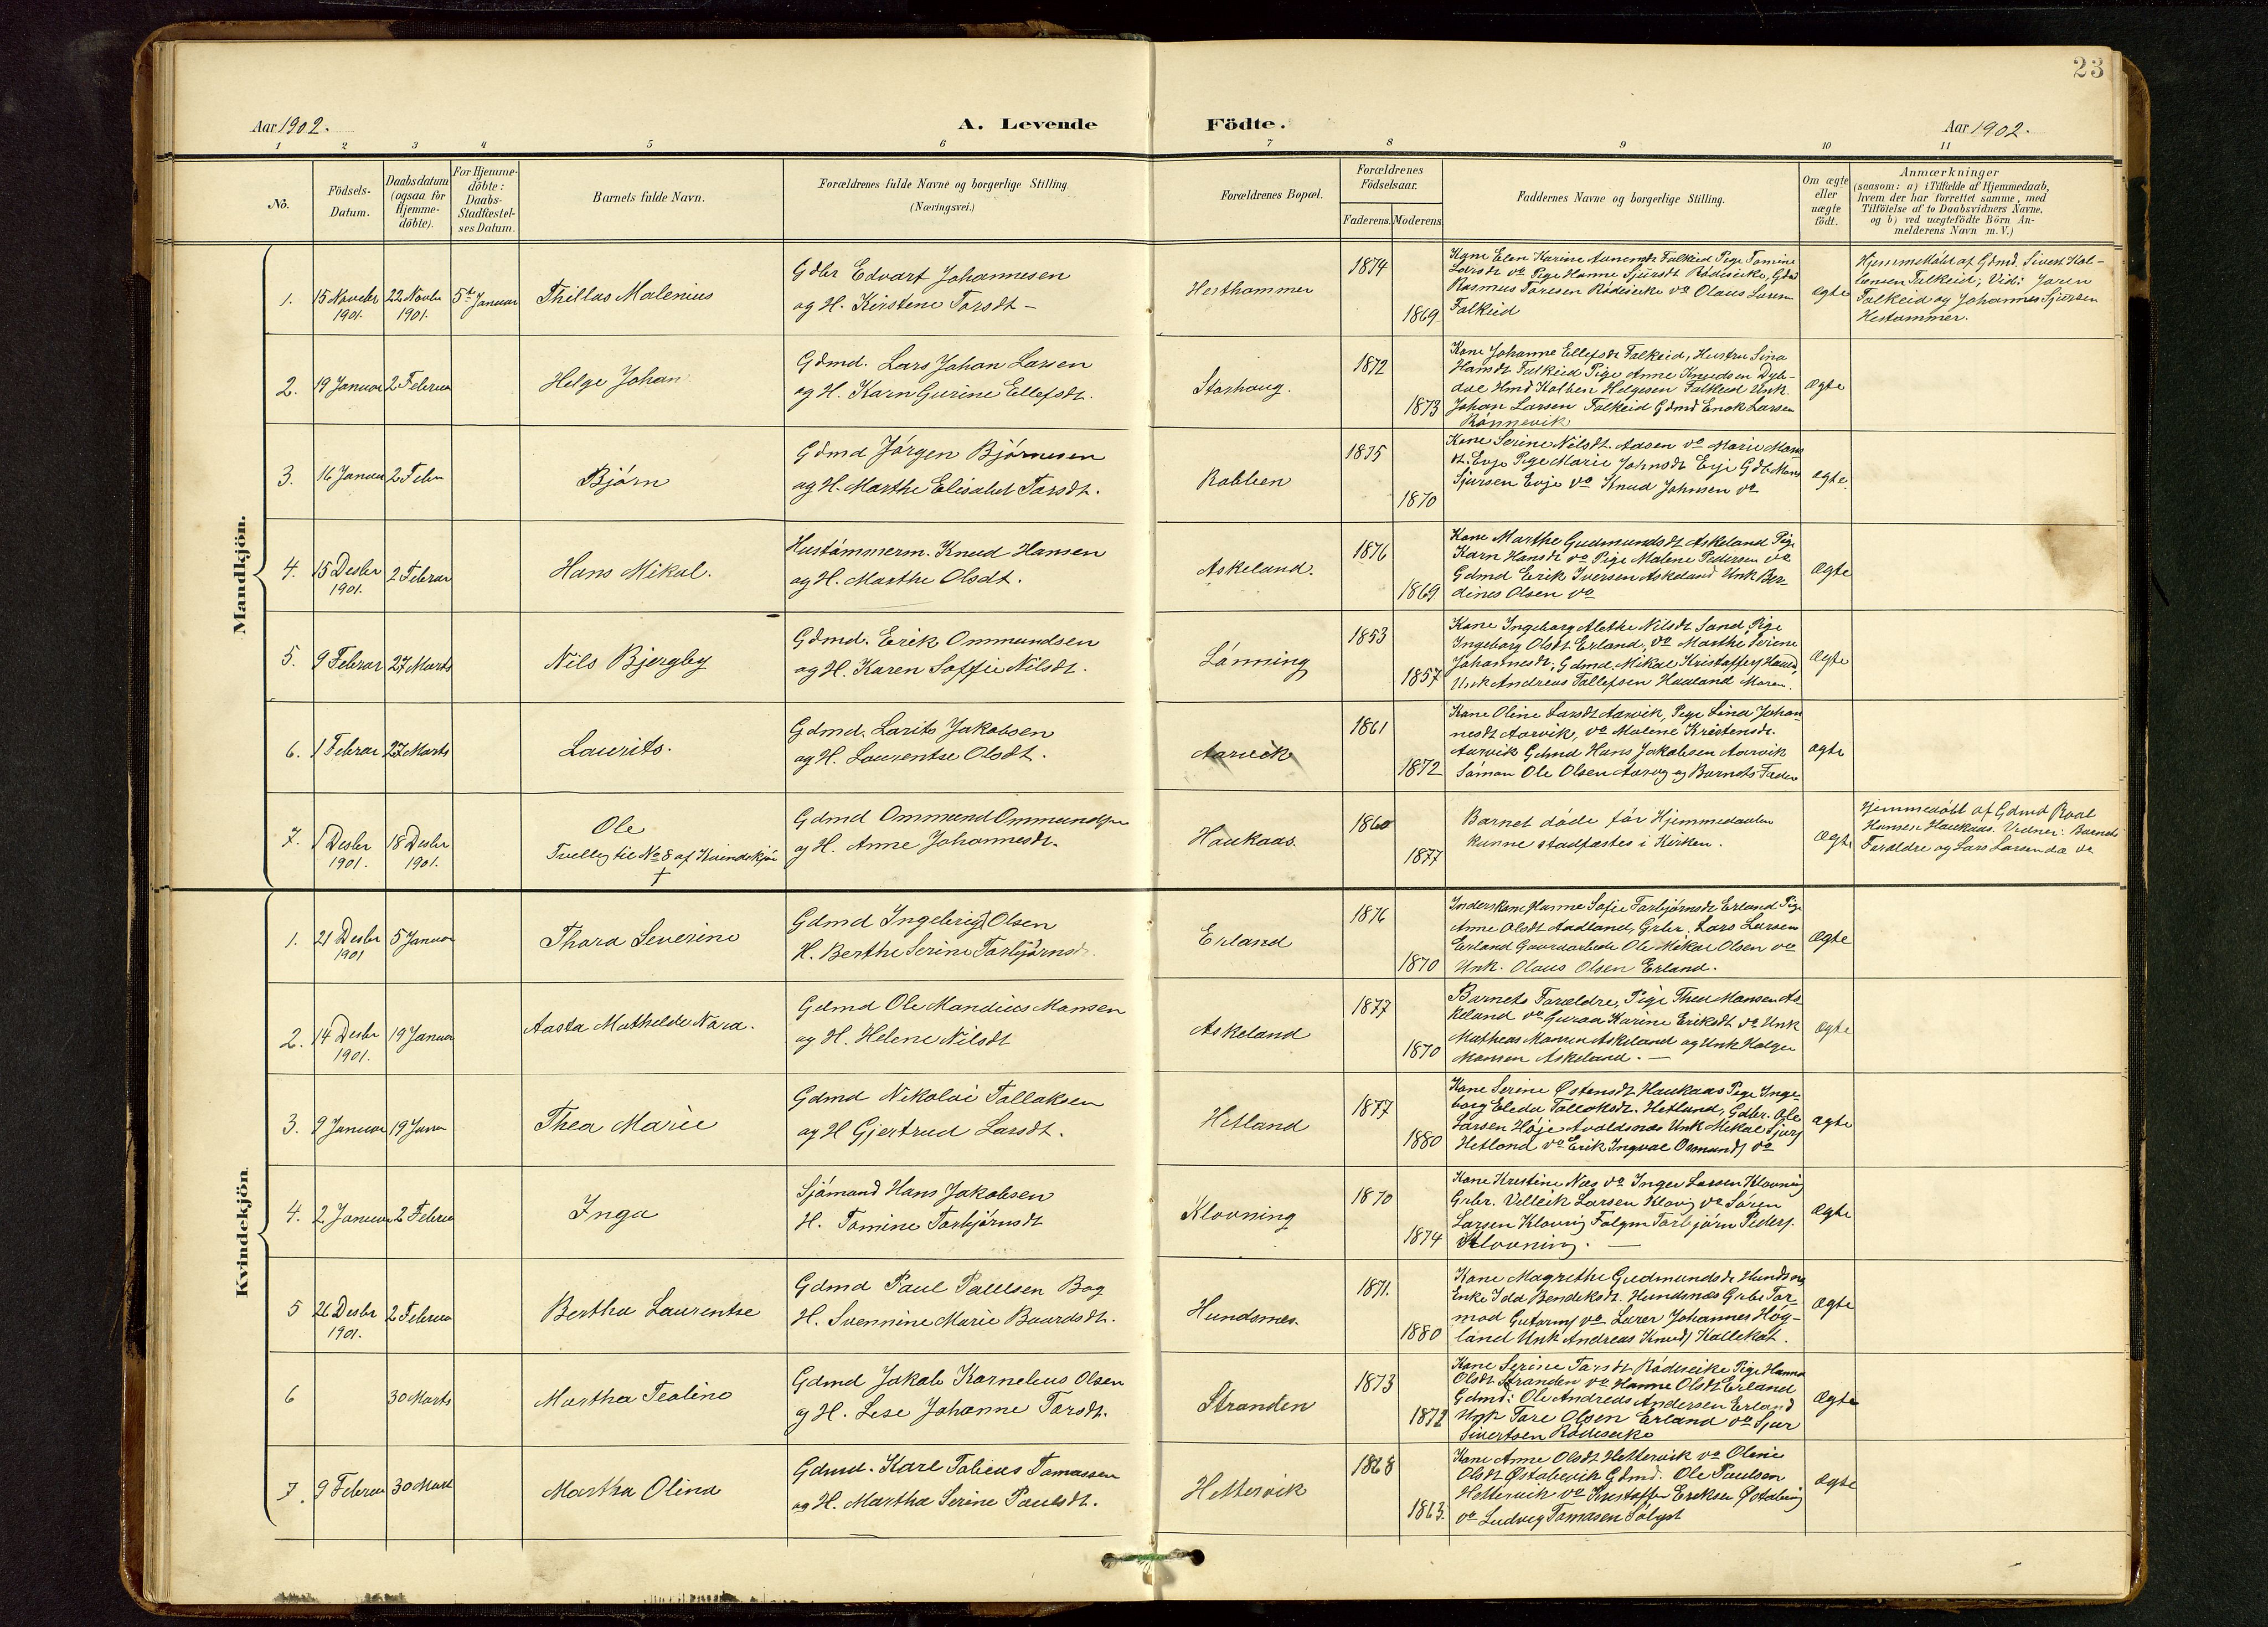 23
Aar 1902.
A. Levende Födte.
Aar 1902.
1 2 3 4 5 6 7 8 9 10 11
No.
Födsels-
Datum.
Daabsdatum
(ogsaa for
Hjemme-
döbte).
For Hjemme-
döbte:
Daabs-
Stadfæstel-
ses Datum.
Barnets fulde Navn.
Forældrenes fulde Navne og borgerlige Stilling.
(Næringsvei.)
Forældrenes Bopæl.
Forældrenes
Födselsaar.
Faderens. Moderens.
Faddernes Navne og borgerlige Stilling.
Om ægte
eller
uægte
födt.
Anmærkninger
(saasom: a) i Tilfælde af Hjemmedaab,
hvem der har forrettet samme, med
Tilföielse af to Daabsvidners Navne,
og b) ved uægtefödte Börn An-
melderens Navn m. V.)
Mandkjön.
1.
15 Novebr
1901.
22 Novbr
1901.
5te Januar
Thillas Malenius
Gdbr Edvart Johannesen
og H. Kirstene Tarsdt -
Hesthammer
1874
1869
Kone Elen Karine Falkeid Pige Tomine
Larsdt do Pige Hanne Sjursdt Rødseike, Gdmd
Rasmus Toresen Rødseike do Olaus Larsen
Falkeid
egte
Hjemmedöbt af Gdmd. Sivert Kol-
bensen Falkeid, Vid: Joren
Falkeid og Johannes Sjursen
Hestammer.
2.
19 Januar
2 Februa
Helge Johan
Gdmd. Lars Johan Larsen
og H. Karn Gurine Ellefsdt.
Storhaug.
1872
1873
Kone Johanne Ellefsdt Falkeid, Hustru Sina
Hansdt Falkeid Pige Anne Knudsen Dyb-
dal Kolben Helgesen Falkeid Unk
Johan Larsen Falkeid Gdmd Enok Larsen
Rönnevik
Ægte
3.
16 Januar
2 Febr
Björn
Gdmd Jörgen Björnesen
og H. Marthe Elisabet Tarsdt.
Rabben
1875
1870
Kone Serine Nilsdt. Aasen do Marie Mons
dt. Evje Pige Marie Johnsdt Evje Gdb. Mons
Sjursen Evje do Knud Johnsen do
ægte.
4.
15 Desbr
1901.
2 Februar
Hans Mikal.
Hustömmerm. Knud Hansen
og H. Marthe Olsdt.
Askeland.
1876
1869
Kone Marthe Gudmundsdt Askeland Pige
Karn Hansdt do Pige Malene Pedersen do
Gdmd Erik Iversen Askeland Unk Ber-
dines Olsen do
Ægte
5.
9 Februar
27 Marts
Nils Bjergby
Gdmd. Erik Ommundsen
og H. Karen Soffie Nilsdt.
Lönning
1853
1857
Kone Ingeborg Alethe Nilsdt Sand Pige
Ingeborg Olsdt Erland, do Marthe Seriene
Johannesdt, Gdmd. Mikal Kristoffers
Unk Andreas Tollefsen Haaland
Ægte
6.
1 Februar
27 Marts
Laurits.
Gdmd. Larits Jakobsen
og H. Laurentse Olsdt.
Aarvik
1861
1872
Kone Oline Larsdt Aarvik, Pige Lina Johan
nesdt Aarvik, do Malene Kristensdt.
Aarvik Gdmd Hans Jakobsen Aarvik
Sömon Ole Olsen Aarvig og Barnets Fader
ægte
7.
1 Desbr
1901.
18 Desbr
1901.
Ole
Tvelling til No 8 af Kvindekjön
†
Gdmd Ommund Ommundsen
og H. Anne Johannesdt.
Haukaas.
1860
1877
Barnet döde för Hjemmedaaben
kunne stadfæstes i Kirken.
Ægte
Hjemmedöbt af Gdmd
Hansen Haukaas. Vidner: Barnets
Forældre og Lars Larsen do
Kvindekjön
1.
21 Desbr
1901
5 Januar
Thora Severine
Gdmd Ingebrigt Olsen
H. Berthe Serine Torbjörnsdt.
Erland
1876
1870
Inderskone Hanne Sofie Torbjörnsdt Erland Pige
Anne Olsdt Aadland, Grbr. Lars Larsen
Erland Gaardarbeide Ole Mikal Olsen do
Unk. Olaus Olsen Erland.
Ægte
2.
14 Desbr
1901.
19 Januar
Aasta Mathelde Nora.
Gdmd Ole Mandius Monsen
og H. Helene Nilsdt
Askeland
1877
1870
Barnets Forældre, Pige Thea Monsen As
keland do Guroa Karine Eriksdt do Unk
Matheas Monsen Askeland og Unk Holger
Monsen Askeland. -
Ægte
3.
9 Januar
19 Janu
Thea Marie
Gdmd Nikolai Tollaksen
og H Gjertrud Larsdt.
Hetland
1877
1880
Kone Serine Østensdt. Haukaas Pige Inge-
borg Eleda Tolloksdt. Hetland, Gdbr. Ole
Larsen Höje Avaldsnæs Unk Mikal Sjurs
Hetland do Erik Ingval Osmunds do
ægte
4.
2 Januar
2 Februa
Inga
Sjömand Hans Jakobsen
H. Tomine Torbjörnsdt
Klovning
1870
1874
Kone Kristine Næs do Inger Larsen Klovning
Grbr. Velleik Larsen Klovng do Sören
Larsen Klovnig Torbjörn Peders.
Klovning. -
Ægte
5
26 Desbr
1901.
2 Februa
Bertha Laurentse
Gdmd Paul Paulsen Bog
H. Svennine Marie Baardsdt.
Hundsnes.
1871.
1880
Kone Magrethe Gudmundsdt Hundsnes
Enke Ida Bendiksdt. Hundsnæs Grbr Tor-
mod Gutorms do Lærer Johannes Høg-
land Unk Andreas Knuds Kallekot.
Ægte
6
30 Marts
Martha Tealine
Gdmd Jakob Kornelius Olsen
og H. Lese Johanne Tarsdt.
Stranden
1873
1872
Kone Serine Tarsdt. Rödseike Pige Hanna
Olsdt Stranden do Hanne Olsdt Erland
Gdmd: Ole Andreas Andersen Erland
Unk Tore Olsen Erland do Sjur
Sivertsen Rödseike
Ægte
7.
9 Februar
30 Mart
Martha Olina
Gdmd. Karl Tobieas Tomassen
og H. Martha Serine Paulsdt.
Hettervik
1868
1863.
Kone Anne Olsdt Hettervik do Olene
Olsdt Østabøvik Gdmd. Ole Paulsen
Hettervik do Kristoffer Eriksen
do Ludvig Tomasen Solyst
Ægte